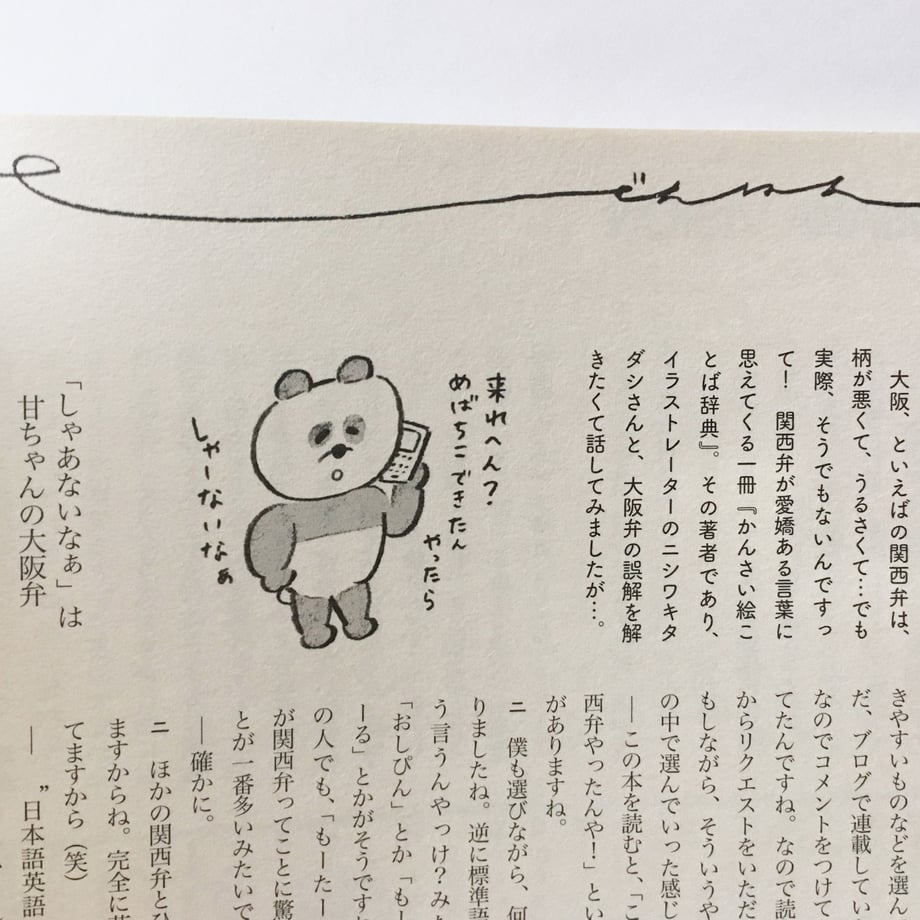 大阪、といえばの関西弁は、
柄が悪くて、うるさくて…でも
実際、そうでもないんですっ
て！ 関西弁が愛嬌ある言葉に
思えてくる一冊『かんさい絵こ
とば辞典』。その著者であり、
イラストレーターのニシワキタ
ダシさんと、大阪弁の誤解を解
きたくて話してみましたが…。
来れへん？
めばちこできたん
やったら
しゃーないなぁ
「しゃあないなぁ」は
甘ちゃんの大阪弁
きやすいものなどを選ん
だ、ブログで連載してい
なのでコメントをつけて
てたんですね。なので読
からリクエストをいただ
もしながら、そういうや
の中で選んでいった感じ
── この本を読むと、「こ
西弁やったんや！」とい
がありますね。
ニ 僕も選びながら、何
りましたね。逆に標準語
う言うんやっけ？みた
「おしぴん」とか「もー
ーる」とかがそうです
の人でも、「もーたー
が関西弁ってことに驚
とが一番多いみたいで
── 確かに。
ニ ほかの関西弁とひ
ますからね。完全に
てますから（笑）
── ”日本語英語